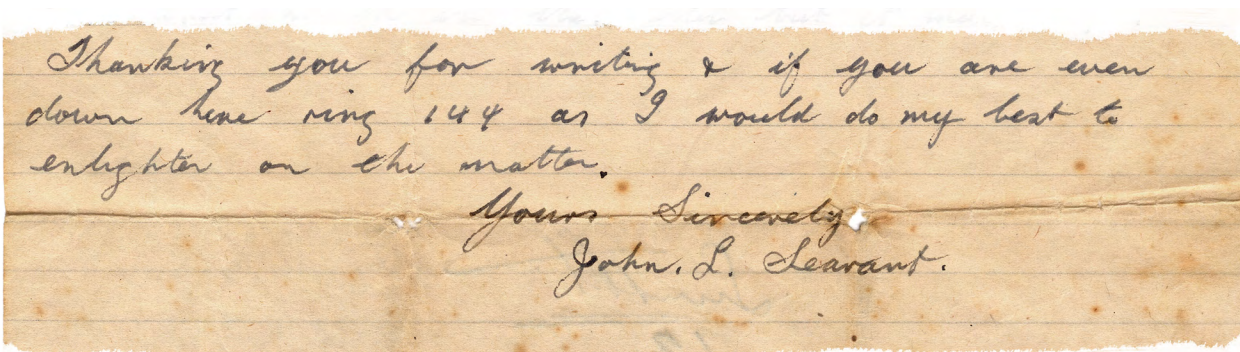 Thanking you for writing & if you are ever
down here ring 144 as I would do my best to
enlighten on the matter.
Yours Sincerely
John. L. Searant.